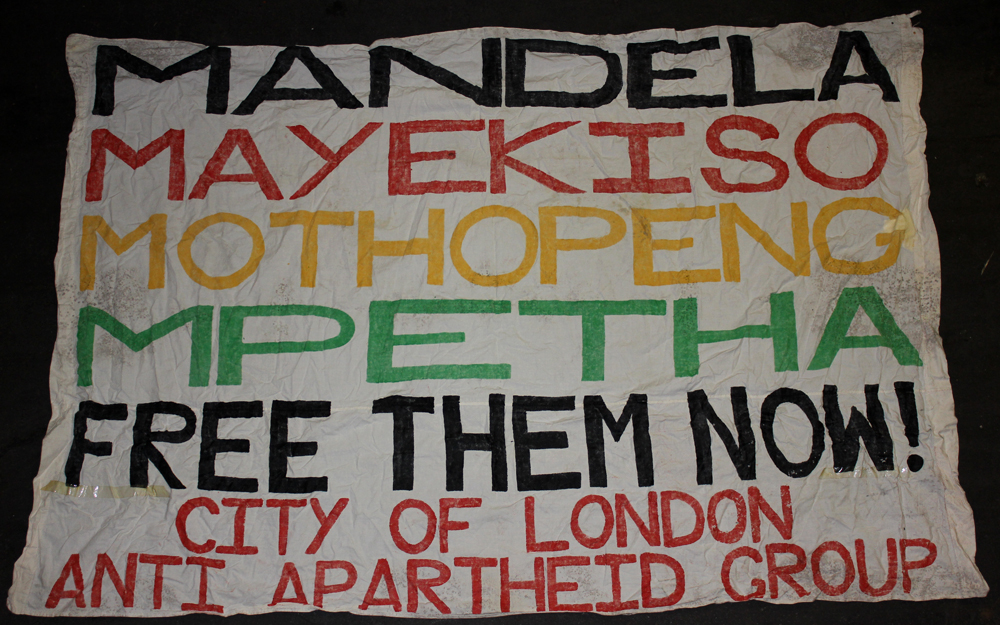 MANDELA
MAYEKISO
MOTHOPENG
MPETHA
FREE THEM NOW!
CITY OF LONDON
ANTI APARTHEID GROUP